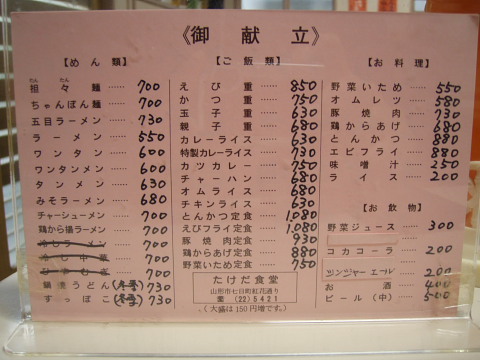 《御献立》
【めん類】
坦々麺 …… 700
たん たん
ちゃんぽん麺 …… 700
五目ラーメン …… 730
ラーメン …… 550
ワンタン …… 600
ワンタンメン …… 600
タンメン …… 630
みそラーメン …… 680
チャーシューメン 700
鶏から揚ラーメン 700
冷しラーメン 700
冷し中華 700
ひやむぎ 700
鍋焼うどん(冬季) 730
すっぽこ(冬季) 730
【ご飯類】
えび重 …… 850
かつ重 …… 750
玉子重 …… 630
親子重 …… 680
カレーライス …… 630
特製カレーライス …… 730
カツカレー …… 750
チャーハン …… 680
オムライス …… 680
チキンライス …… 630
とんかつ定食 …… 1,080
えびフライ定食 …… 1,080
豚焼肉定食 …… 930
鶏からあげ定食 …… 880
野菜いため定食 …… 750
たけだ食堂
山形市七日町紅花通り
☎ (22) 5421
(大盛は150円増です。)
【お料理】
野菜いため …… 550
オムレツ …… 580
豚焼肉 …… 730
鶏からあげ …… 680
とんかつ …… 880
エビフライ …… 880
味噌汁 …… 250
ライス …… 200
【お飲物】
野菜ジュース …… 300
コカコーラ …… 200
ジンジャーエール 200
お酒 …… 400
ビール(中) …… 500